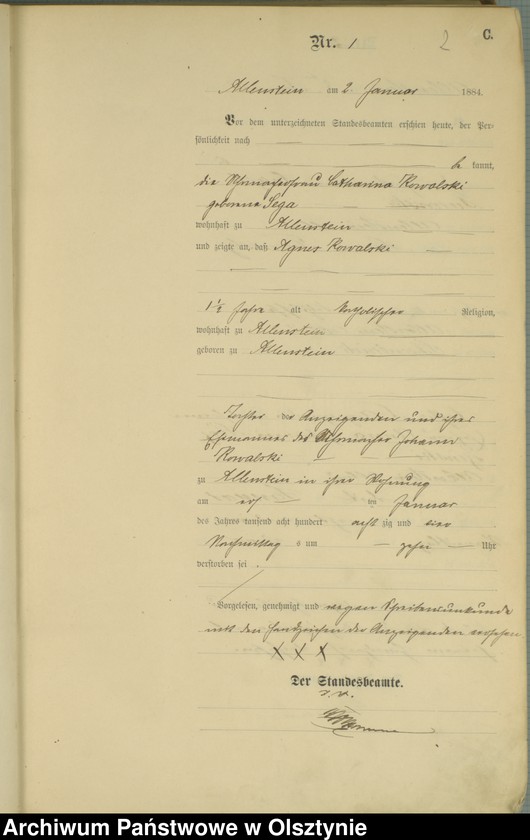 C.
Nr. 1
2
Allenstein am 2 Januar 1884.
Vor dem unterzeichneten Standesbeamten erschien heute, der Per-
sönlichkeit nach
be kannt,
die Catharina Kowalski
geborene Sega
wohnhaft zu Allenstein
und zeigte an, daß Agnes Kowalski
1½ Jahre alt katholischer Religion,
wohnhaft zu Allenstein
geboren zu Allenstein
Tochter der Anzeigenden und ihres
Ehemannes des Johann
Kowalski
zu Allenstein in ihrer Wohnung
am ten Januar
des Jahres tausend acht hundert acht zig und vier
Nachmittag s um zehn Uhr
verstorben sei.
Vorgelesen, genehmigt und wegen Schreibensunkunde
mit den Handzeichen der Anzeigenden versehen
X X X
Der Standesbeamte.